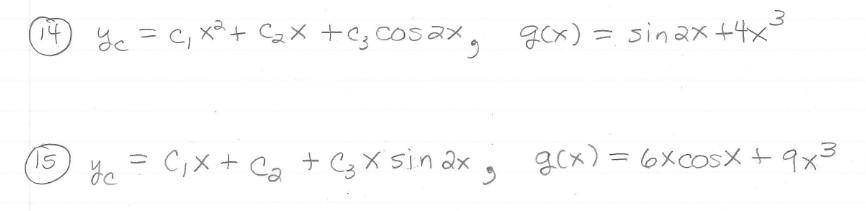 ⑭ y_c = c₁x² + c₂x + c₃cos2x, g(x) = sin2x + 4x³
⑮ y_c = c₁x + c₂ + c₃x sin2x, g(x) = 6xcosx + 9x³